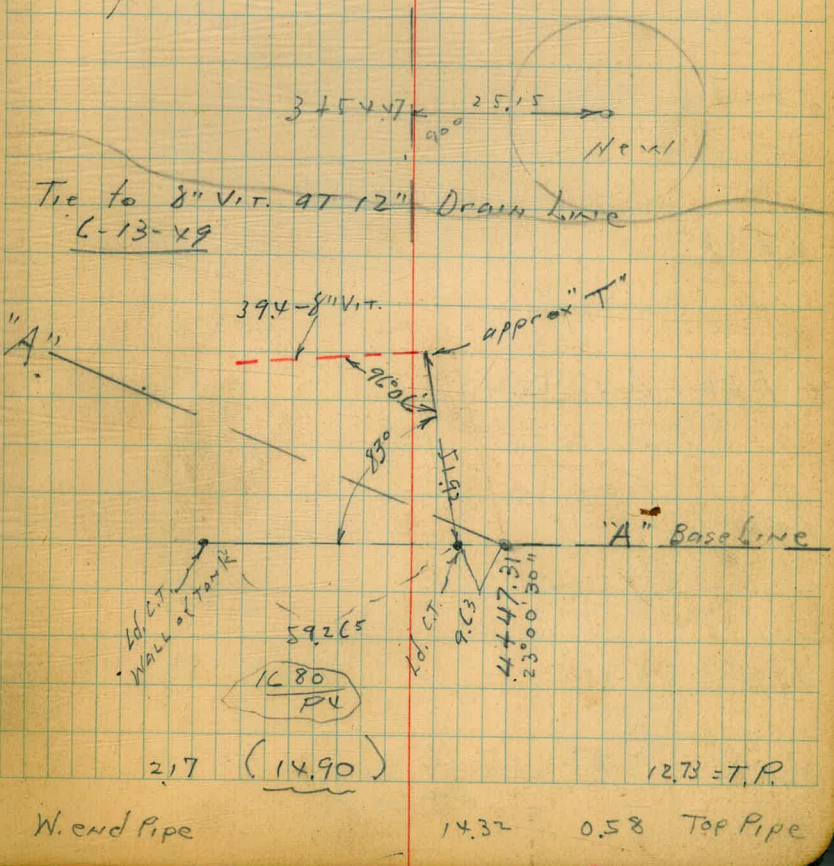 3+54.47 25.15
90°
New
Tie to 8" VIT. at 12" Drain Line
6-13-49
39.4-8" VIT.
approx "T"
"A"
96°06'
83°
51.92
"A" Baseline
Ld. C.T.
Wall of Tank
59.265
Ld. C.T.
9.63
4+47.31
23°00'30"
1680
P4
2.17 (14.90) 12.73 = T.P.
W. end Pipe 14.32 0.58 Top Pipe